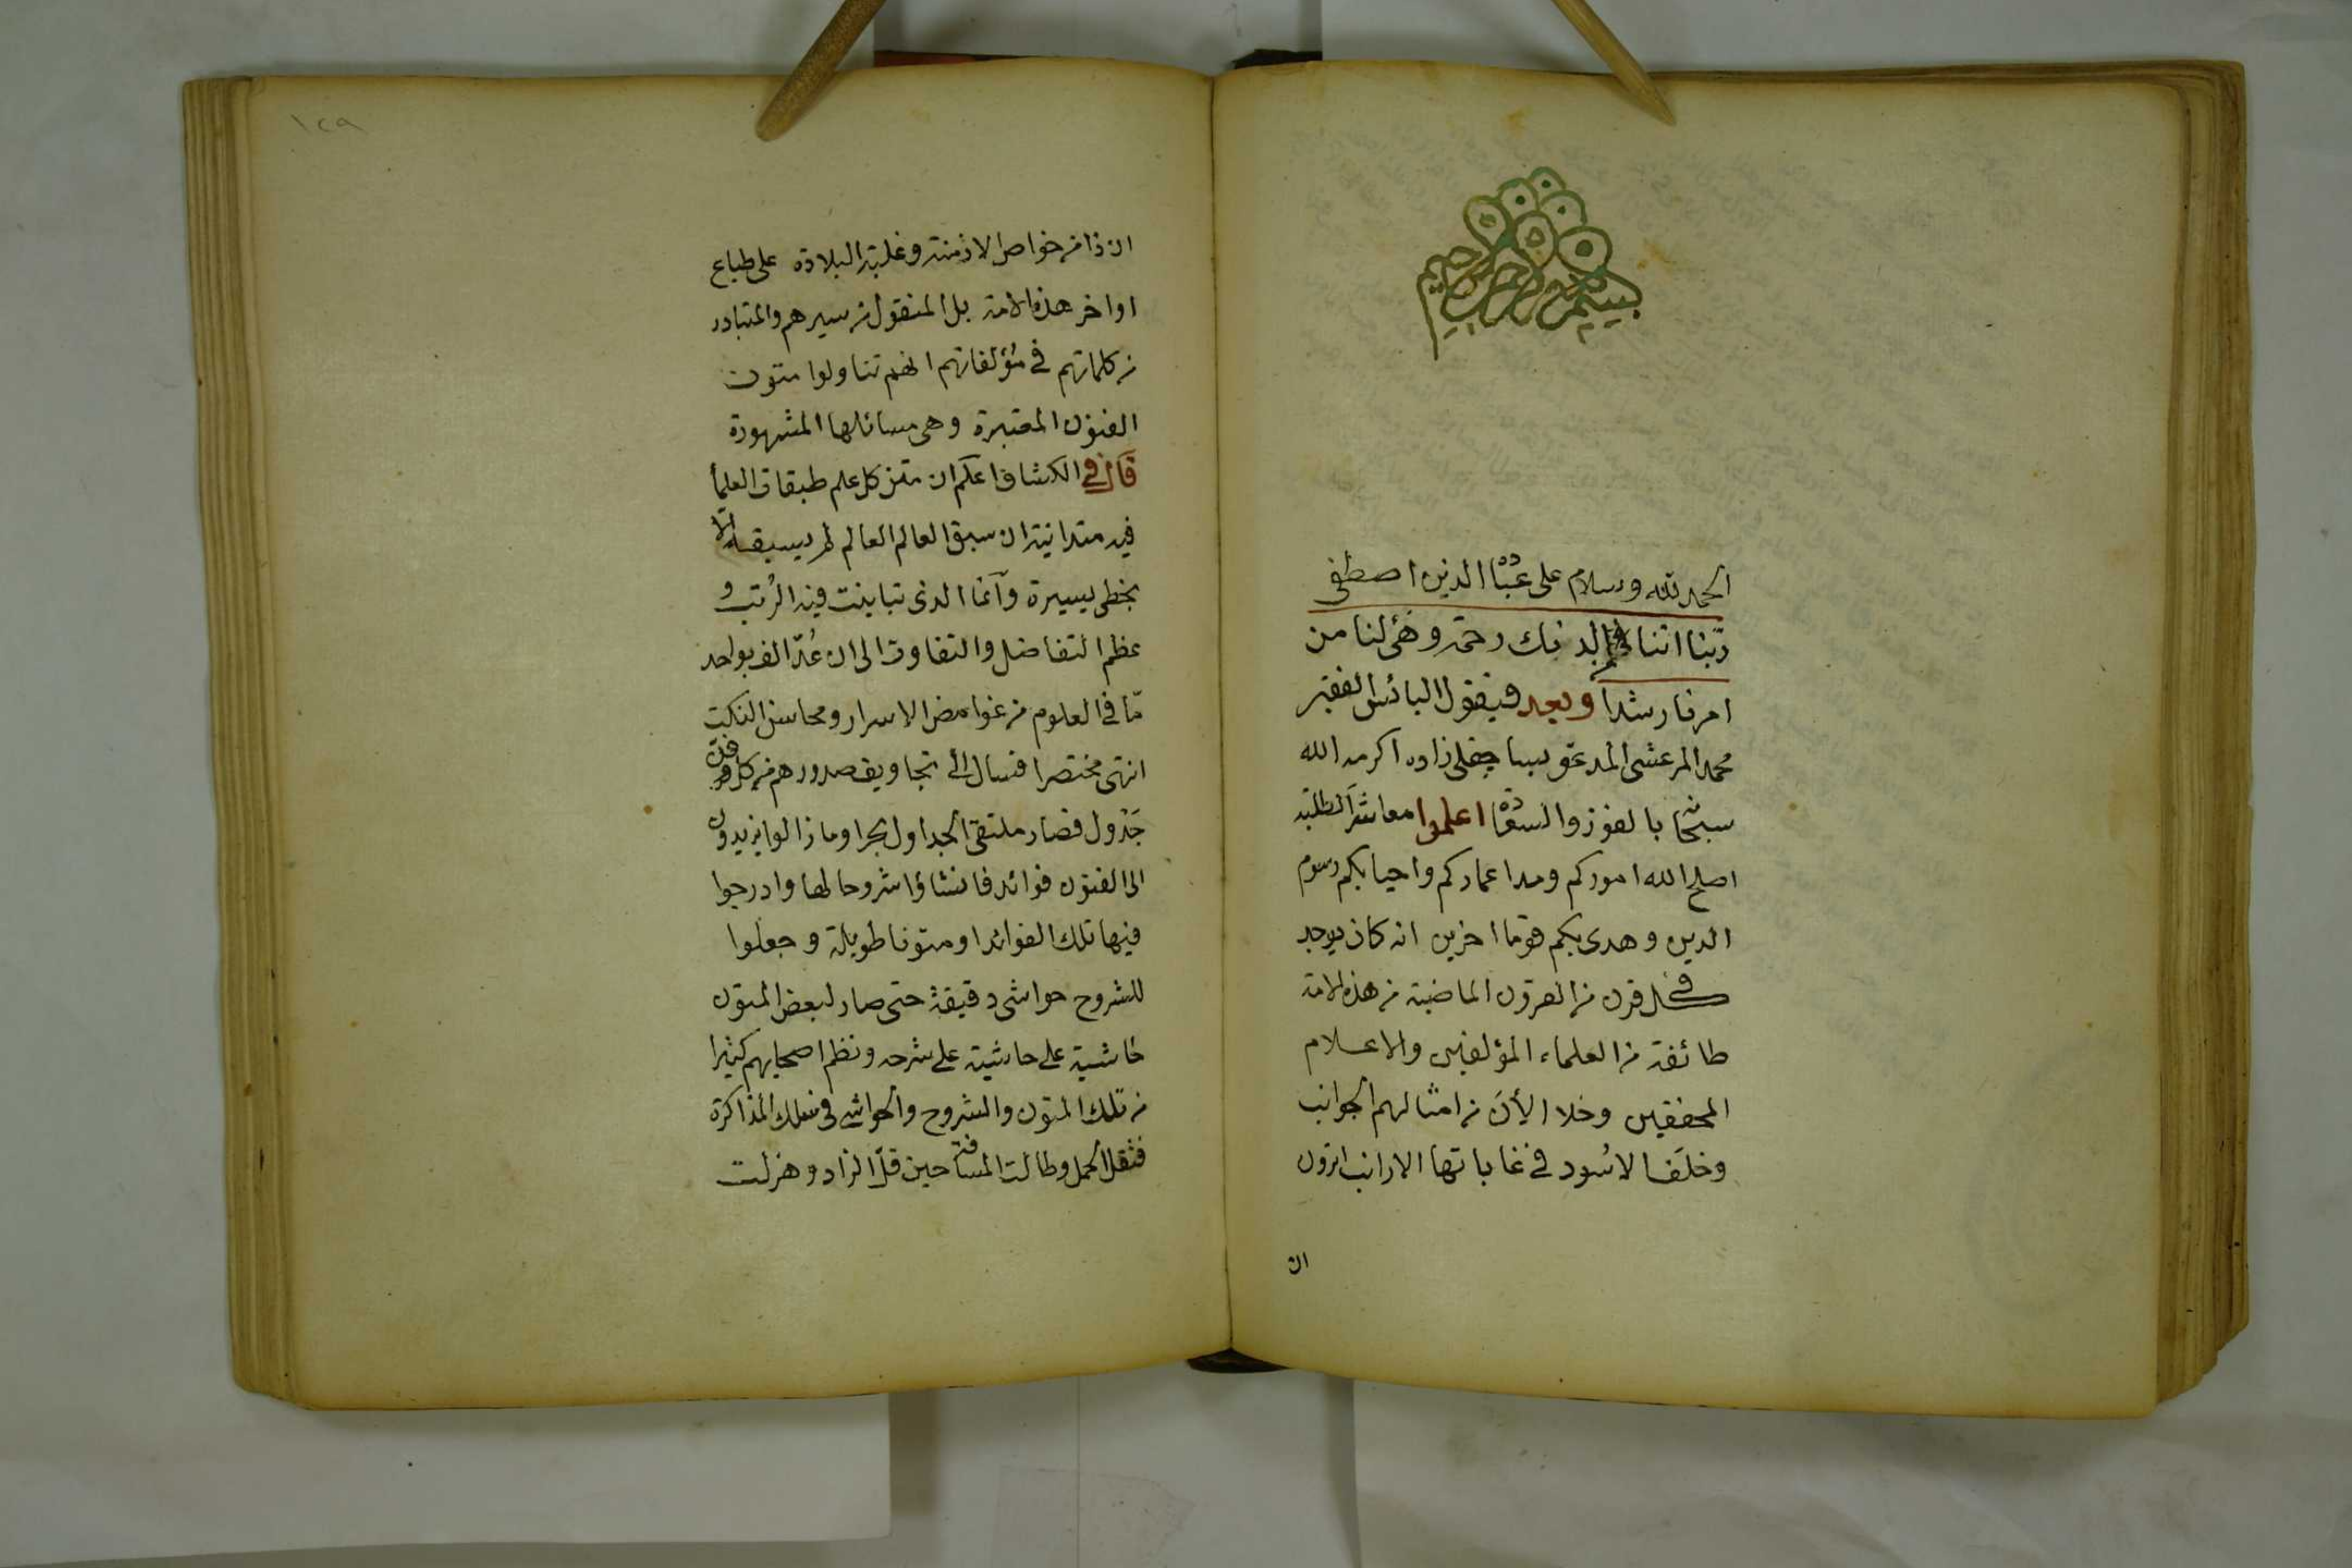 بسم الله الرحمن الرحيم
الحمد لله وسلام على عباده الذين اصطفى
ربنا اتنا من لدنك رحمة وهئ لنا من
امرنا رشدا وبعد فيقول البائس الفقير
محمد المرعشى المدعو بساجقلى زاده اكرمه الله
سبحانه بالفوز والسعادة اعلموا معاشر الطلبة
اصلح الله اموركم ومد اعماركم واحيا بكم رسوم
الدين وهدى بكم قوما اخرين انه كان يوجد
فى كل قرن من القرون الماضية من هذه الامة
طائفة من العلماء المؤلفين والاعلام
المحققين وخلا الأن من امثالهم الجوانب
وخلف الاسود فى غاباتها الارانب اترون
ان
١٢٩
ان ذا من خواص الازمنة وغلبة البلادة على طباع
اواخر هذه الامة بل المنقول من سيرهم والمتبادر
من كلماتهم فى مؤلفاتهم انهم تناولوا متون
الفنون المعتبرة وهى مسائلها المشهورة
قال فى الكشاف اعلم ان متن كل علم طبقات العلمأ
فيه متدانية ان سبق العالم العالم لم يسبقه الا
بخطى يسيرة وانما الذى تباينت فيه الرتب و
عظم التفاضل والتفاوت الى ان عد الف بواحد
ما فى العلوم من غوامض الاسرار ومحاسن النكت
انتهى مختصرا فسال الى تجاويف صدورهم من كل فن
جدول فصار ملتقى الجداول بحرا وما زالوا يزيدون
الى الفنون فوائد فانشاؤا شروحا لها وادرجوا
فيها تلك الفوائد او متونا طويلة وجعلوا
للشروح حواشى دقيقة حتى صار لبعض المتون
حاشية على حاشية على شرحه ونظم اصحابهم كثيرا
من تلك المتون والشروح والحواشى فى سلك المذاكرة
فثقل الحمل وطالت المسافة حين قل الزاد وهزلت